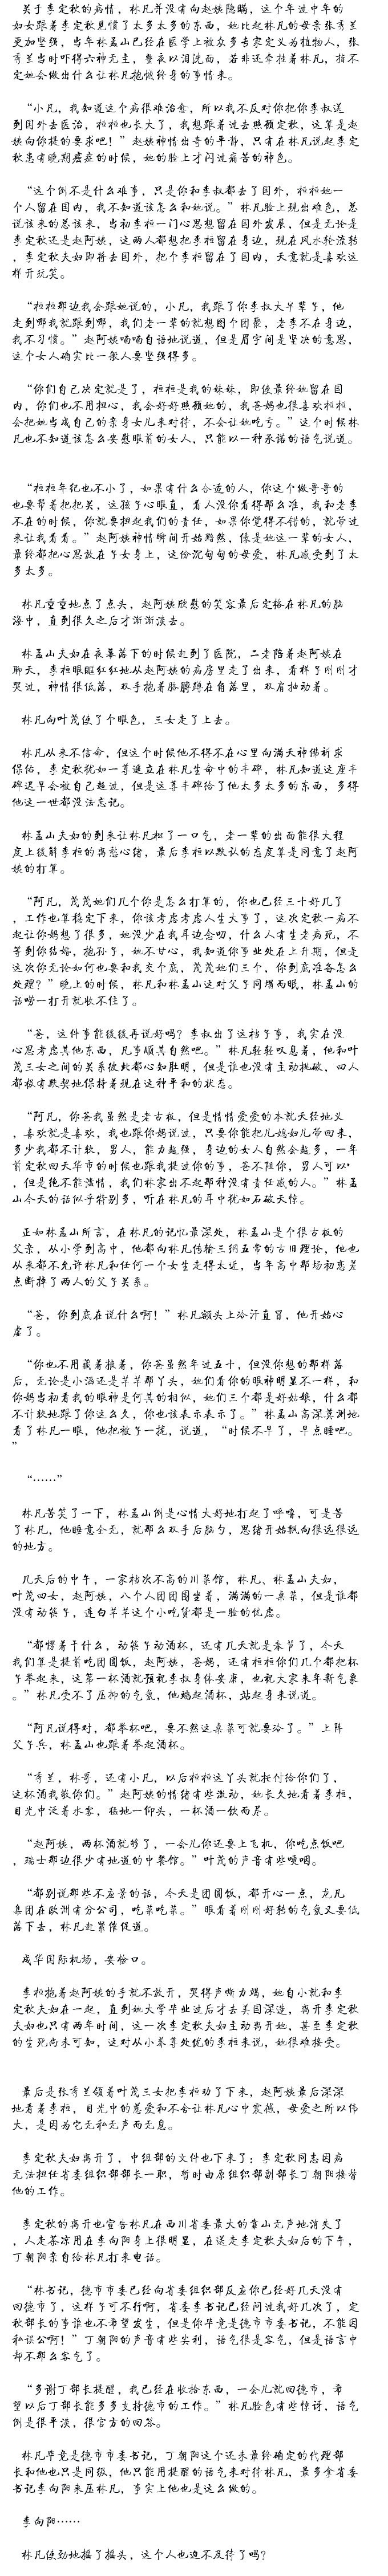 关于李定秋的病情，林凡并没有向赵姨隐瞒，这个年过中年的
妇女跟着李定秋见惯了太多太多的东西，她比起林凡的母亲张秀兰
更加坚强，当年林孟山已经在医学上被众多专家定义为植物人，张
秀兰当时吓得六神无主，整夜以泪洗面，若非还牵挂着林凡，指不
定她会做出什么让林凡抱憾终身的事情来。
“小凡，我知道这个病很难治愈，所以我不反对你把你李叔送
到国外去医治，桓桓也长大了，我想跟着过去照顾定秋，这算是赵
姨向你提的要求吧！”赵姨神情出奇的平静，只有在林凡说起李定
秋患有晚期癌症的时候，她的脸上才闪过痛苦的神色。
“这个倒不是什么难事，只是你和李叔都去了国外，桓桓她一
个人留在国内，我不知道该怎么和她说。”林凡脸上现出难色，总
说该来的总该来，当初李桓一门心思想留在国外发展，但是无论是
李定秋还是赵阿姨，这两人都想把李桓留在身边，现在风水轮流转
，李定秋夫妇即将去国外，把个李桓留在了国内，天意就是喜欢这
样开玩笑。
“桓桓那边我会跟她说的，小凡，我跟了你李叔大半辈子，他
走到哪我就跟到哪，我们老一辈的就想图个团聚，老李不在身边，
我不习惯。”赵阿姨喃喃自语地说道，但是眉宇间是坚决的意思，
这个女人确实比一般人要坚强得多。
“你们自己决定就是了，桓桓是我的妹妹，即使最终她留在国
内，你们也不用担心，我会好好照顾她的，我爸妈也很喜欢桓桓，
会把她当成自己的亲身女儿来对待，不会让她吃亏。”这个时候林
凡也不知道该怎么安慰眼前的女人，只能以一种承诺的语气说道。
“桓桓年纪也不小了，如果有什么合适的人，你这个做哥哥的
也要帮着把把关，这孩子心眼直，看人没你看得那么准，我和老李
不在的时候，你就要担起我们的责任，如果你觉得不错的，就带过
来让我看看。”赵阿姨神情瞬间开始黯然，像是她这一辈的女人，
最终都把心思放在子女身上，这份沉甸甸的母爱，林凡感受到了太
多太多。
林凡重重地点了点头，赵阿姨欣慰的笑容最后定格在林凡的脑
海中，直到很久之后才渐渐淡去。
林孟山夫妇在夜幕落下的时候赶到了医院，二老陪着赵阿姨在
聊天，李桓眼眶红红地从赵阿姨的病房里走了出来，看样子刚刚才
哭过，神情很低落，双手抱着胳膊蹲在角落里，双肩抽动着。
林凡向叶茂使了个眼色，三女走了上去。
林凡从来不信命，但这个时候他不得不在心里向满天神佛祈求
保佑，李定秋犹如一尊道立在林凡生命中的丰碑，林凡知道这座丰
碑迟早会被自己超过，但是这尊丰碑给了他太多太多的东西，多得
他这一世都没法忘记。
林孟山夫妇的到来让林凡松了一口气，老一辈的出面能很大程
度上缓解李桓的离愁心绪，最后李桓以默认的态度算是同意了赵阿
姨的打算。
“阿凡，茂茂她们几个你是怎么打算的，你也已经三十好几了
，工作也算稳定下来，你该考虑考虑人生大事了，这次定秋一病不
起让你妈想了很多，她没少在我耳边念叨，什么人有生老病死，不
等到你结婚，抱孙子，她不甘心，我知道你事业处在上升期，但是
这次你无论如何也要和我交个底，茂茂她们三个，你到底准备怎么
处理？”晚上的时候，林凡和林孟山这对父子同塌而眠，林孟山的
话唠一打开就收不住了。
“爸，这件事能缓缓再说好吗？李叔出了这档子事，我实在没
心思考虑其他东西，凡事顺其自然吧。”林凡轻轻叹息着，他和叶
茂三女之间的关系彼此都心知肚明，但是谁也没有主动挑破，四人
都极有默契地保持着现在这种平和的状态。
“阿凡，你爸我虽然是老古板，但是情情爱爱的本就天经地义
，喜欢就是喜欢，我也跟你妈说过，只要你能把儿媳妇儿带回来，
多少我都不计较，男人，能力越强，身边的女人自然会越多，一年
前定秋四天华市的时候也跟我提过你的事，爸不阻你，男人可以*
，但是绝不能滥情，我们林家出不起那种没有责任感的人。”林孟
山今天的话似乎特别多，听在林凡的耳中犹如石破天惊。
正如林孟山所言，在林凡的记忆最深处，林孟山是个很古板的
父亲，从小学到高中，他都向林凡传输三纲五常的古旧理论，他也
从来都不允许林凡和任何一个女生走得太近，当年高中那场初恋差
点断掉了两人的父子关系。
“爸，你到底在说什么啊！”林凡额头上冷汗直冒，他开始心
虚了。
“你也不用藏着掖着，你爸虽然年过五十，但没你想的那样落
后，无论是小洒还是芊芊那丫头，她们看你的眼神明显不一样，和
你妈当初看我的眼神是何其的相似，她们三个都是好姑娘，什么都
不计较地跟了你这么久，你也该表示表示了。”林孟山高深莫测地
看了林凡一眼，他把被子一拢，说道，“时候不早了，早点睡吧。
”
“……”
林凡苦笑了一下，林孟山倒是心情大好地打起了呼噜，可是苦
了林凡，他睡意全无，就那么双手后脑勺，思绪开始飘向很远很远
的地方。
几天后的中午，一家档次不高的川菜馆，林凡、林孟山夫妇，
叶茂四女，赵阿姨，八个人团团围坐着，满满的一桌菜，但是谁都
没有动筷子，连白芊芊这个小吃货都是一脸的忧虑。
“都愣着干什么，动筷子动酒杯，还有几天就是春节了，今天
我们算是提前吃团圆饭，赵阿姨，爸妈，还有桓桓你们几个都把杯
子举起来，这第一杯酒就预祝李叔身体安康，也祝大家来年新气象
。”林凡受不了压抑的气氛，他端起酒杯，站起身来说道。
“阿凡说得对，都举杯吧，要不然这桌菜可就要冷了。”上阵
父子兵，林孟山也跟着举起酒杯。
“秀兰，林哥，还有小凡，以后桓桓这丫头就托付给你们了，
这杯酒我敬你们。”赵阿姨的情绪有些激动，她长久地看着李桓，
目光中泛着水雾，猛地一仰头，一杯酒一饮而尽。
“赵阿姨，两杯酒就够了，一会儿你还要上飞机，你吃点饭吧
，瑞士那边很少有地道的中餐馆。”叶茂的声音有些哽咽。
“都别说那些不应景的话，今天是团圆饭，都开心一点，龙凡
集团在欧洲有分公司，吃菜吃菜。”眼看着刚刚好转的气氛又要低
落下去，林凡赶紧催促道。
成华国际机场，安检口。
李桓抱着赵阿姨的手就不放开，哭得声嘶力竭，她自小就和李
定秋夫妇在一起，直到她大学毕业过后才去美国深造，离开李定秋
夫妇也只有两年时间，这一次李定秋夫妇主动离开她，甚至李定秋
的生死尚未可知，这对从小养尊处优的李桓来说，她很难接受。
最后是张秀兰领着叶茂三女把李桓劝了下来，赵阿姨最后深深
地看着李桓，目光中的慈爱和不舍让林凡心中震憾，母爱之所以伟
大，是因为它无私无声而无息。
李定秋夫妇离开了，中组部的文件也下来了：李定秋同志因病
无法担任省委组织部部长一职，暂时由原组织部副部长丁朝阳接替
他的工作。
李定秋的离开也宣告林凡在西川省委最大的靠山无声地消失了
，人走茶凉用在李向阳身上很明显，在送走李定秋夫妇后的下午，
丁朝阳亲自给林凡打来电话。
“林书记，德市市委已经向省委组织部反应你已经好几天没有
回德市了，这样子可不行啊，省委李书记已经问过我好几次了，定
秋部长的事谁也不希望发生，但是你毕竟是德市市委书记，不能因
私误公啊！”丁朝阳的声音有些尖利，语气很是客气，但是话言中
却不那么客气了。
“多谢丁部长提醒，我已经在收拾东西，一会儿就回德市，希
望以后丁部长能多多支持德市的工作。”林凡脸色有些惊讶，语气
倒是很平淡，很官方的回答。
林凡毕竟是德市市委书记，丁朝阳这个还未最终确定的代理部
长和他也只是同级，他只能用提醒的语气来对待林凡，最多拿省委
书记李向阳来压林凡，事实上他也是这么做的。
李向阳……
林凡使劲地摇了摇头，这个人也迫不及待了吗？